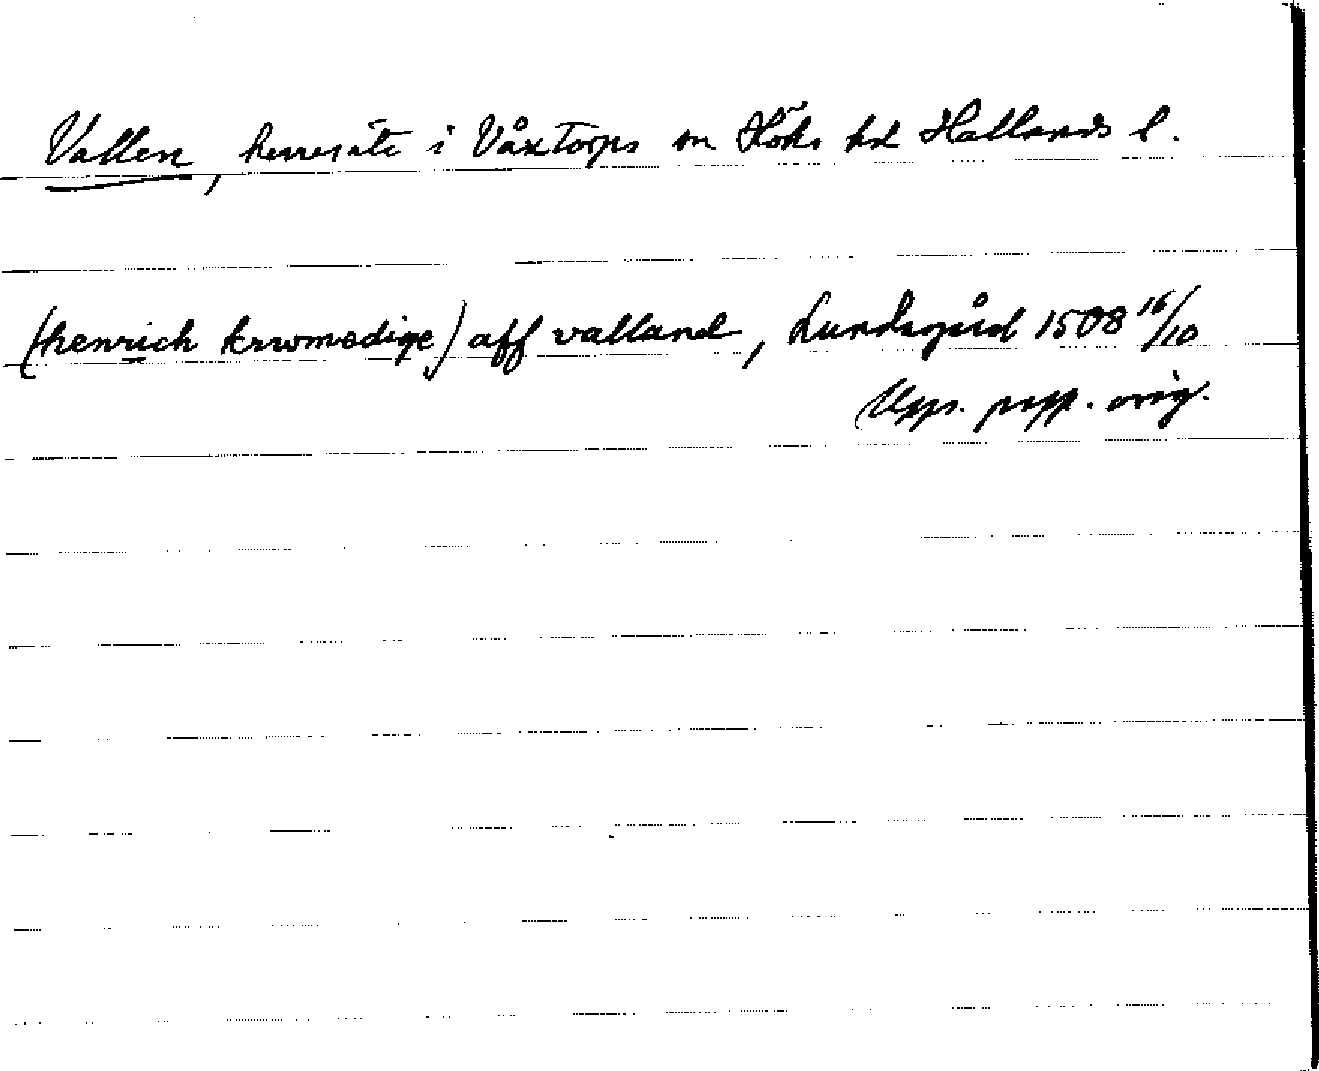 Vallen, herresäte i Våxtorps sn Höks hd Hallands l.
(henrich krwmedige) aff valland, Lundsgård 1508 16/10
Upps. papp. orig.